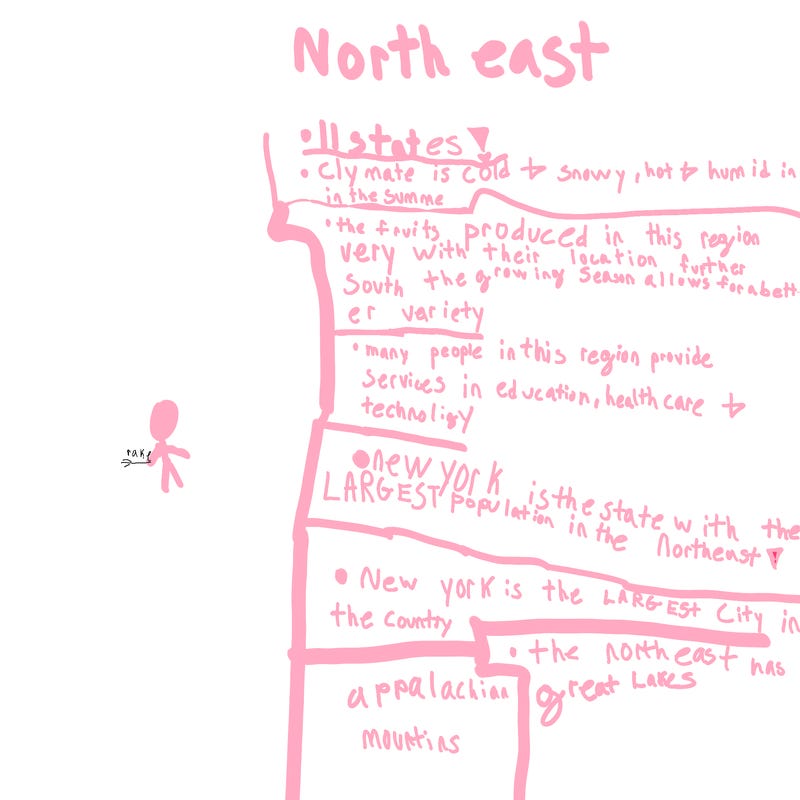 North east
•11 states
• Clymate is cold + snowy, hot + humid in
in the summe
• the fruits produced in this region
very with their location further
South the growing season allows for a bett
er variety
• many people in this region provide
services in education, healthcare +
technoligy
•new york is the state with the
LARGEST population in the Northeast
rake
• New york is the LARGEST City in
the country
• the northeast has
great Lakes
appalachian
mountins